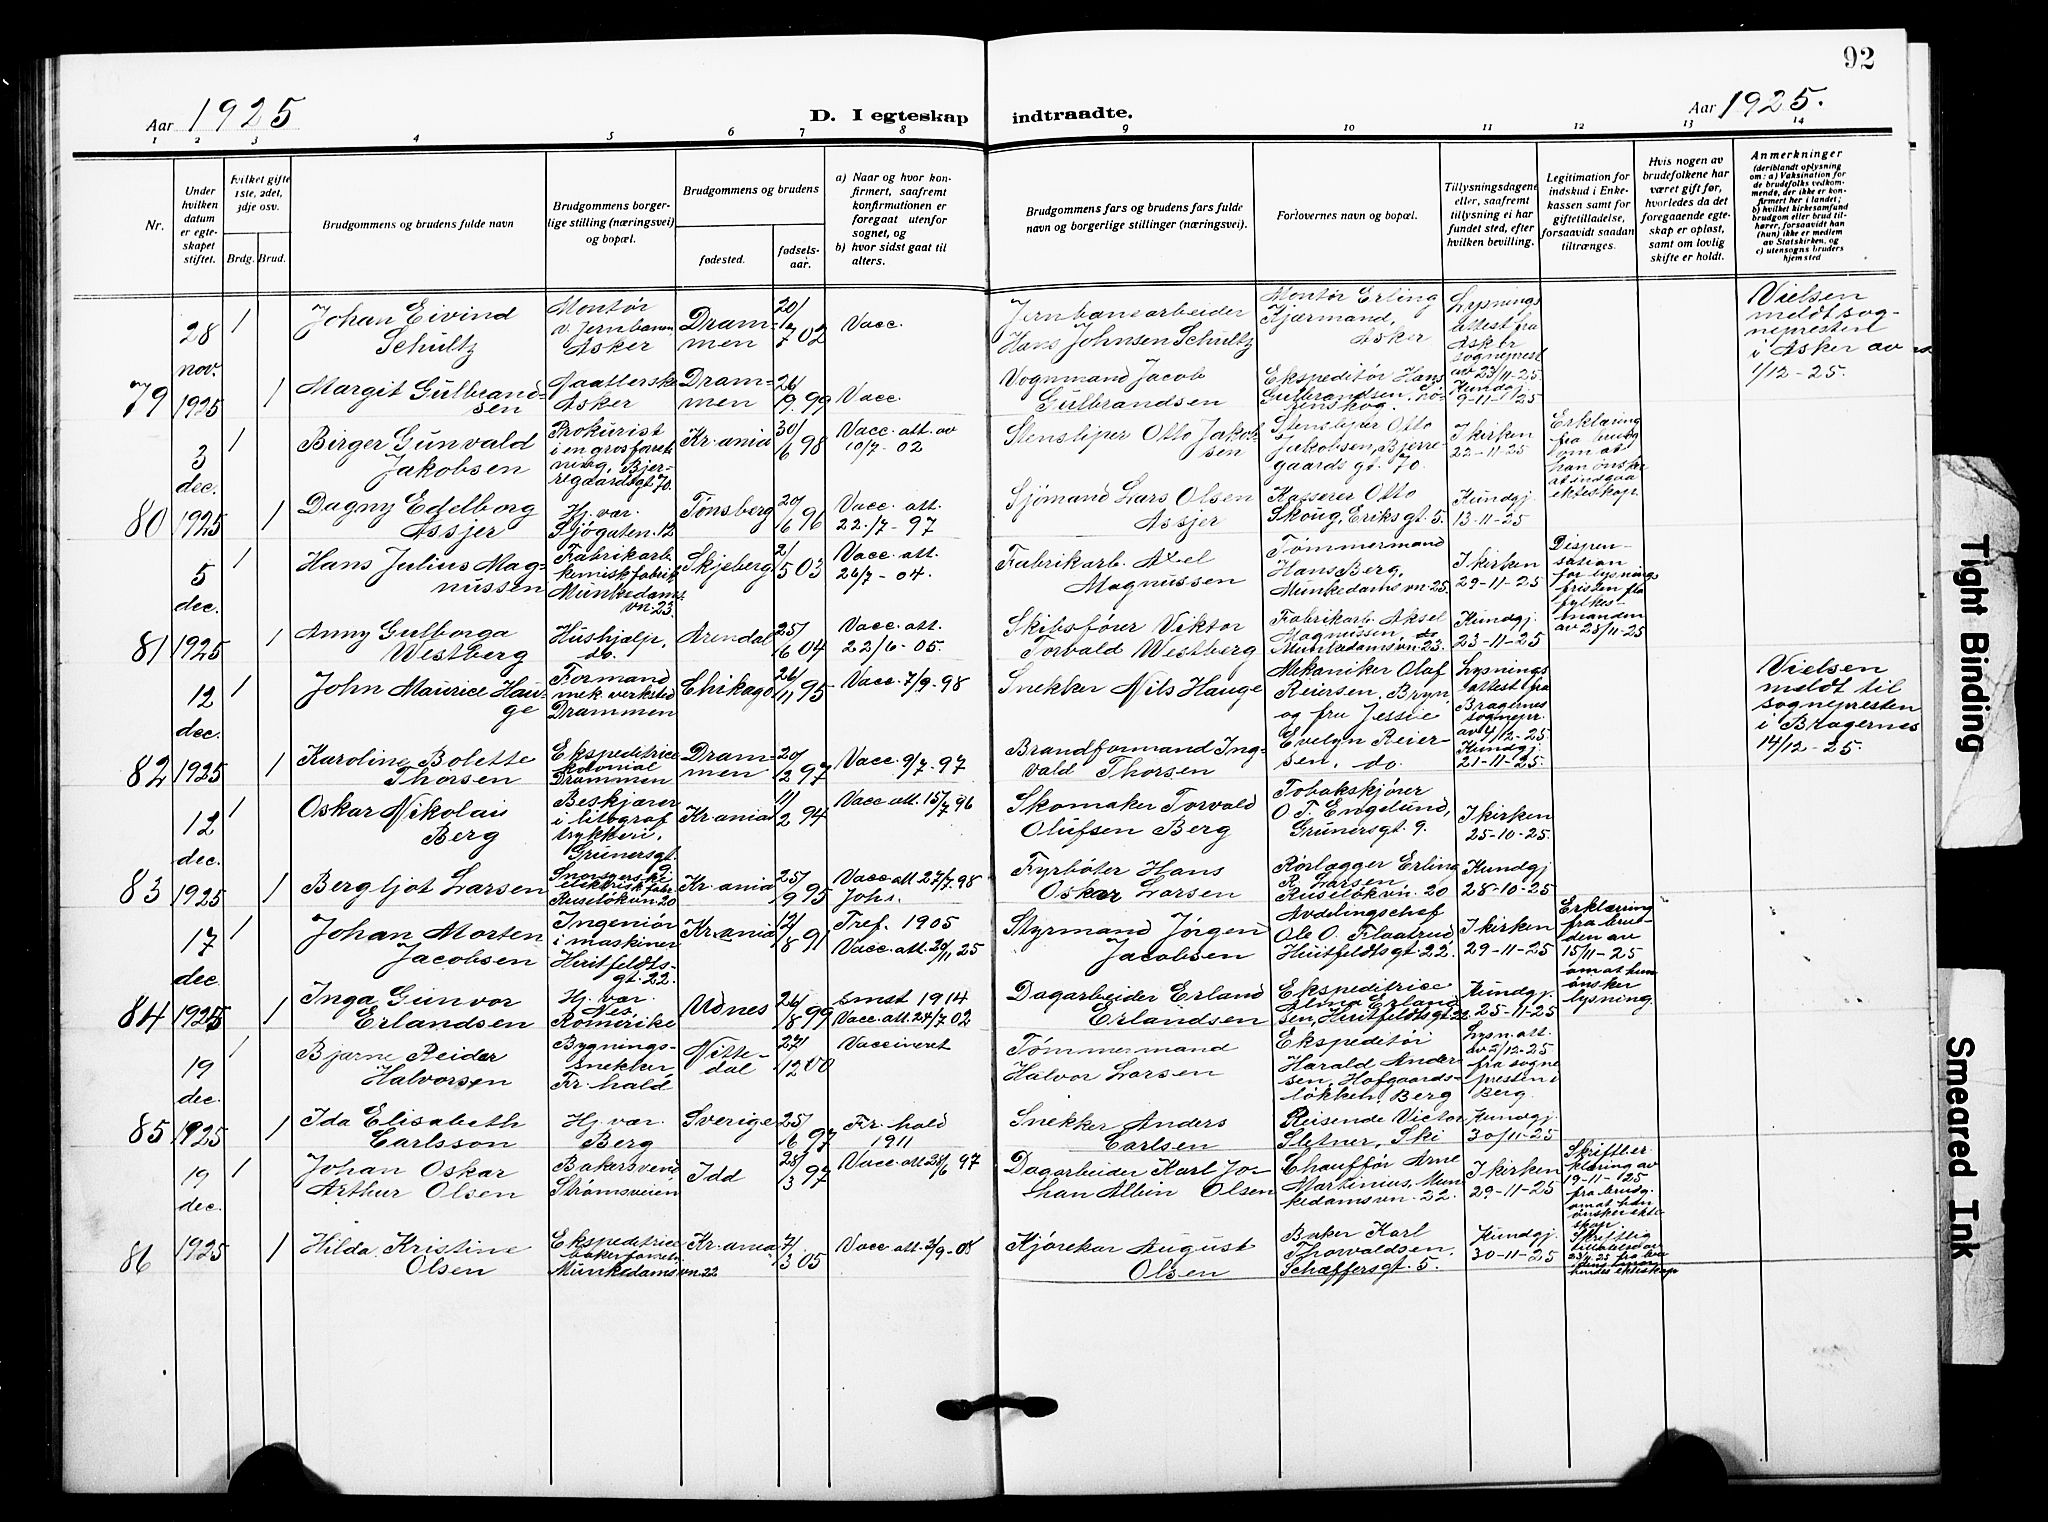 92
Aar 1925
D. I egteskap indtraadte.
Aar 1925.
1 2 3 4 5 6 7 8 9 10 11 12 13 14
Nr.
Under hvilken datum er egteskapet stiftet.
Hvilket gifte 1ste, 2det, 3dje osv.
Brdg. Brud.
Brudgommens og brudens fulde navn
Brudgommens borgerlige stilling (næringsvei) og bopæl.
Brudgommens og brudens
fødested.
fødselsaar.
a) Naar og hvor konfirmert, saafremt konfirmationen er foregaat utenfor sognet, og
b) hvor sidst gaat til alters.
Brudgommens fars og brudens fars fulde navn og borgerlige stillinger (næringsvei).
Forlovernes navn og bopæl.
Tillysningsdagene eller, saafremt tillysning ei har fundet sted, efter hvilken bevilling.
Legitimation for indskud i Enkekassen samt for giftetilladelse, forsaavidt saadan tiltrænges.
Hvis nogen av brudefolkene har været gift før, hvorledes da det foregaaende egteskap er opløst, samt om lovlig skifte er holdt.
Anmerkninger
(deriblandt oplysning om: a) Vaksination for de brudefolks vedkommende, der ikke er konfirmert her i landet; b) hvilket kirkesamfund brudgom eller brud tilhører, forsaavidt han (hun) ikke er medlem av Statskirken, og c) utensogns bruders hjemsted
79
28 nov. 1925
1
Johan Eivind Schultz
Montør v. Jernbanen Asker
Drammen
20/7 02
Vacc.
Jernbanearbeider Hans Johnsen Schultz
Montør Erling Kjærmand, Asker
Lysnings attest fra Asker sogneprest av 23/11-25
Vielsen meldt sognepresten i Asker av 1/12-25.
1
Margit Gulbrandsen
Asker
Drammen
26/9 99
Vacc.
Vognmand Jacob Gulbrandsen
Ekspeditør Hans Gulbrandsen,
Kundgj. 9-11-25
80
3 dec. 1925
1
Birger Gunvald Jakobsen
Prokurist i engrosforretning, Bjerregaardsgt. 70.
Kr.ania
30/6 98
Vacc. att. av 10/7-02
Stensliper Otto Jakobsen
Stensliper Otto Jakobsen, Bjerregaards gt. 70.
I kirken 22-11-25
Erklæring fra brudg om at han ønsker at indgaa ekteskap.
1
Dagny Edelborg Assjer
Hj. vær. Sjøgaten 12
Tønsberg
20/6 96
Vacc. att. 22/7-97
Sjømand Lars Olsen Assjer
Kasserer Otto Skoug, Eriks gt. 5.
Kundgj. 13-11-25
81
5 dec. 1925
1
Hans Julius Magnussen
Fabrikarb. kemisk fabrik Munkedamsvn. 23.
Skjeberg
2/5 03
Vacc. att. 26/7-04.
Fabrikarb. Axel Magnussen
Tømmermand Hans Berg, Munkedamsvn. 25.
I kirken 29-11-25
Dispensation for lysnings fristen fra fylkesmanden av 28/11-25
1
Anny Gulborga Westberg
Hushjelp, do.
Arendal
25/6 04
Vacc. att. 22/6-05.
Skibsfører Viktor Torvald Westberg
Fabrikarb. Aksel Magnussen, do Munkedamsvn. 23.
Kundgj. 23-11-25
82
12 dec. 1925
1
John Maurice Hauge
Formand mek. verksted Drammen
Chikago
26/11 95
Vacc. 7/9-98
Snekker Nils Hauge
Mekaniker Olaf Reiersen, Bryn, og fru Jessie Evelyn Reiersen, do.
Lysnings attest fra Bragernes sognepr. av 4/12-25
Vielsen meldt til sognepresten i Bragernes 14/12-25.
1
Karoline Bolette Thorsen
Ekspeditrice kolonial Drammen
Drammen
20/2 97
Vacc. 9/7-97
Brandformand Ingvald Thorsen
Kundgj. 21-11-25.
83
12 dec. 1925
1
Oskar Nikolai Berg
Beskjærer i litograf trykkeri, Grünersgt. 9.
Kr.ania
11/2 94
Vacc. att. 15/7 96
Skomaker Torvald Olufsen Berg
Tobakskjører O. T. Engelund, Grünersgt. 9.
I kirken 25-10-25.
1
Bergljot Larsen
elektrisk fabr. Ruseløkvn. 20
Kr.ania
25/9 95
Vacc. att 27/7.98 Joh.
Fyrbøter Hans Oskar Larsen
Rørlægger Erling R. Larsen, Ruseløkvn. 20
Kundgj 28-10-25
84
17 dec. 1925
1
Johan Morten Jacobsen
Ingeniør i maskiner Huitfeldtsgt. 22.
Kr.ania
12/8 91
Tref. 1905 Vacc. att. 20/11 25
Styrmand Jørgen Jacobsen
Avdelingschef Ole O. Flaatrud, Huitfeldtsgt. 22.
I kirken 29-11-25
Erklæring fra bruden av 15/11-25 om at hun ønsker lysning.
1
Inga Gunvor Erlandsen
Hj. vær. Nes, Romerike
Udnes
26/8 99
Vacc. att. 24/7 02
Dagarbeider Erland Erlandsen
Ekspeditrice Alma Erlandsen, Huitfeldtsgt 22
Kundgj. 25-11-25
85
19 dec. 1925
1
Bjarne Reidar Halvorsen
Bygningssnekker, Fr. hald
Nittedal
27/12 00
Vaccineret
Tømmermand Halvor Larsen
Ekspeditør Harald Andersen, Hofgaardsløkken, Berg
Lysn. att. av 2/12-25 fra sognepresten i Berg.
1
Ida Elisabeth Carlsson
Hj. vær. Berg
Sverige
25/6 97
Fr. hald 1911
Snekker Anders Carlsen
Reisende Victor Sletner, Ski
Kundgj. 30/11-25
86
19 dec. 1925
1
Johan Oskar Arthur Olsen
Bakersvend Strømsveien
Idd
28/3 97
Vacc. att 28/6 97
Dagarbeider Karl Johan Albin Olsen
Chauffør Arne Martinius, Munkedamsvn. 22.
I kirken 29-11-25
Skriftl. erklæring av 19-11-1925 fra brudg. om at han ønsker ekteskap.
1
Hilda Kristine Olsen
Ekspeditrice Munkedamsvn. 22
Kr.ania
7/3 05
Vacc. att. 3/9-08
Kjørekar August Olsen
Baker Karl Thorvaldsen, Schæffersgt. 5.
Kundgj. 30-11-25
Skriftlig
Tight Binding
Smeared Ink